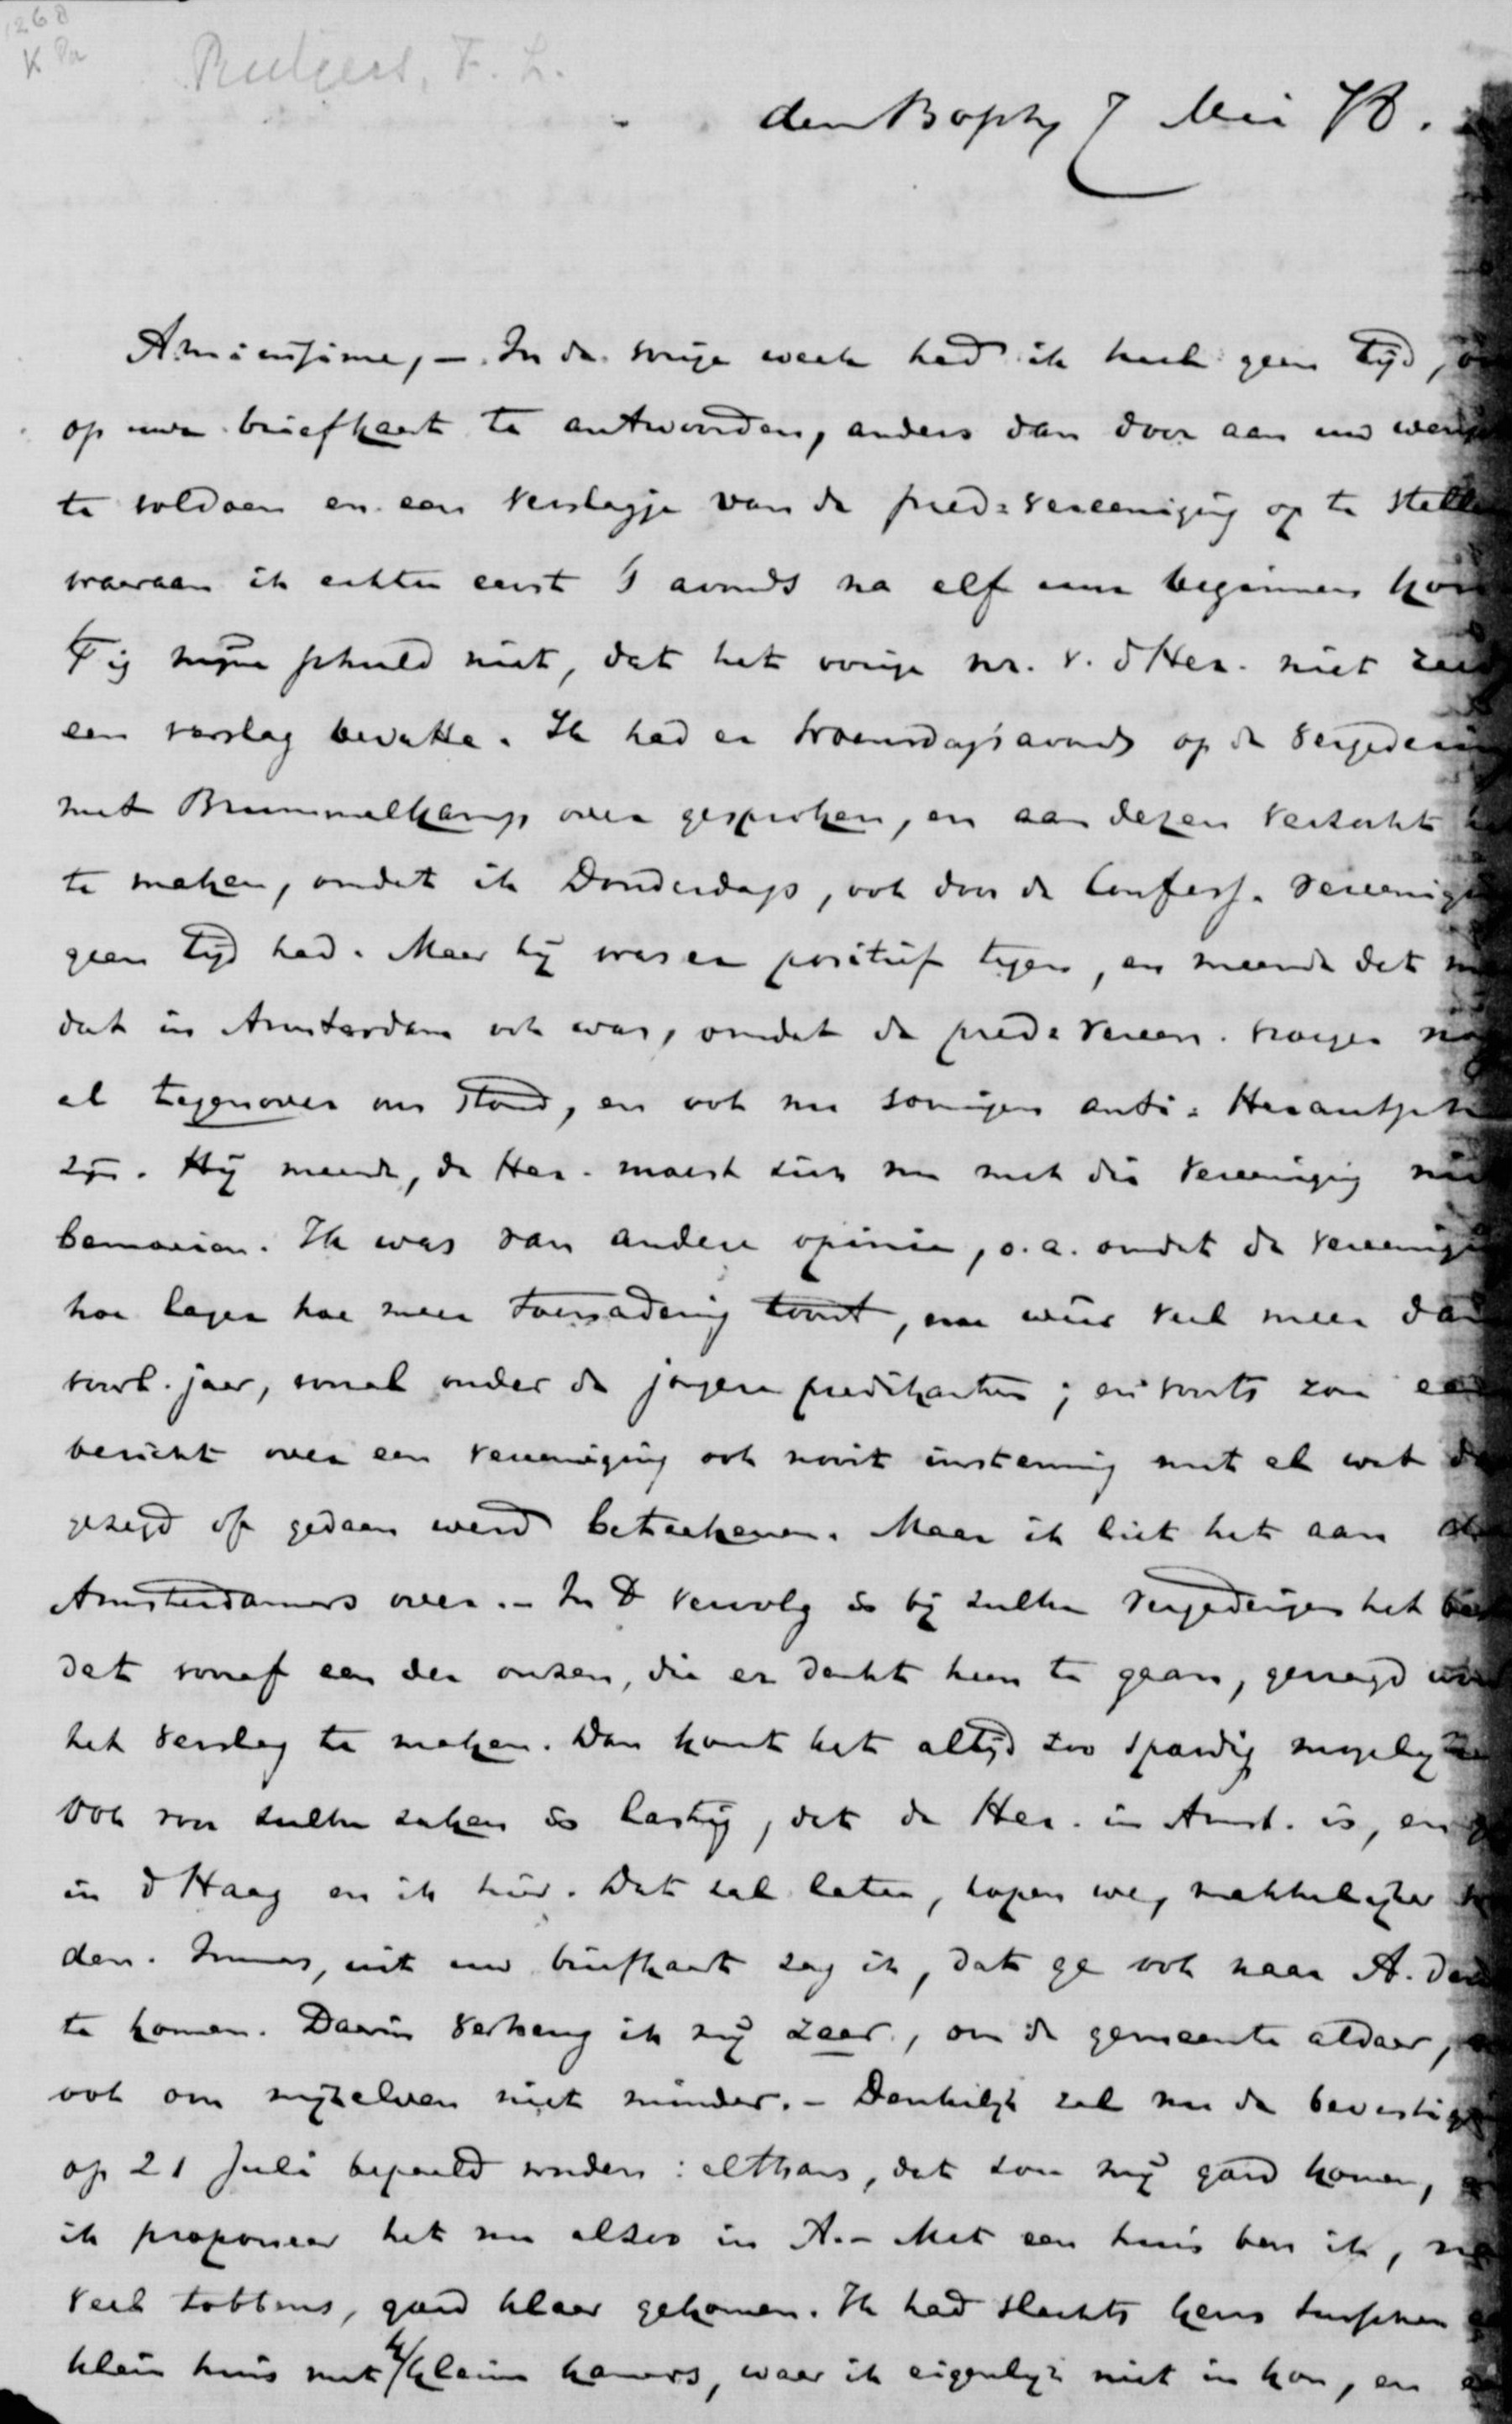 1268
K
Rutgers, F. L.
den Bosch, 7 Mei 78.
Amicissime, – In de vorige week had ik heel geen tijd, om
op uwe briefkaart te antwoorden, anders dan door aan uw wensch
te voldoen en een verslagje van de pred=vereeniging op te stellen
waaraan ik echter eerst 's avonds na elf uur beginnen kon
't Is mijne schuld niet, dat het vorige nr. v. d Her. niet zulk
een verslag bevatte. Ik had er Woensdagsavonds op de vergadering
met Brummelkamp over gesproken, en aan dezen verzocht het
te maken, omdat ik Donderdags, ook door de Confess. Vereeniging
geen tijd had. Maar hij was er positief tegen, en meende dat men
dat in Amsterdam ook was, omdat de pred=vereen. vroeger nog
al tegenover ons stond, en ook nu sommigen anti=Herautsch
zijn. Hij meende, de Her. moest zich nu met die Vereeniging niet
bemoeien. Ik was van andere opinie, o.a. omdat de vereeniging
hoe langer hoe meer toenadering toont, nu weer veel meer dan
verl. jaar, vooral onder de jongere predikanten; en voorts zou een
bericht over een vereeniging ook nooit instemming met al wat daar
gezegd of gedaan werd beteekenen. Maar ik liet het aan de
Amsterdamers over. – In 't vervolg is bij zulke vergaderingen het best
dat vooraf een der onzen, die er denkt heen te gaan, gevraagd word
het verslag te maken. Dan komt het altijd zoo spoedig mogelijk
Ook voor zulke zaken is lastig, dat de Her. in Amst. is, en gij
in d Haag en ik hier. Dat zal later, hopen we, makkelijker wor
den. Immers, uit uw briefkaart zag ik, dat ge ook naar A. denkt
te komen. Daarin verheug ik mij zeer, om de gemeente aldaar, en
ook om mijzelven niet minder. – Denkelijk zal nu de bevestiging
op 21 Juli bepaald worden: althans, dat zou mij goed komen, en
ik proponeer het nu alzoo in A. – Met een huis ben ik, na
veel tobbens, goed klaar gekomen. Ik had slechts keus tusschen een
klein huis met 4 kleine kamers, waar ik eigenlijk niet in kon, en een